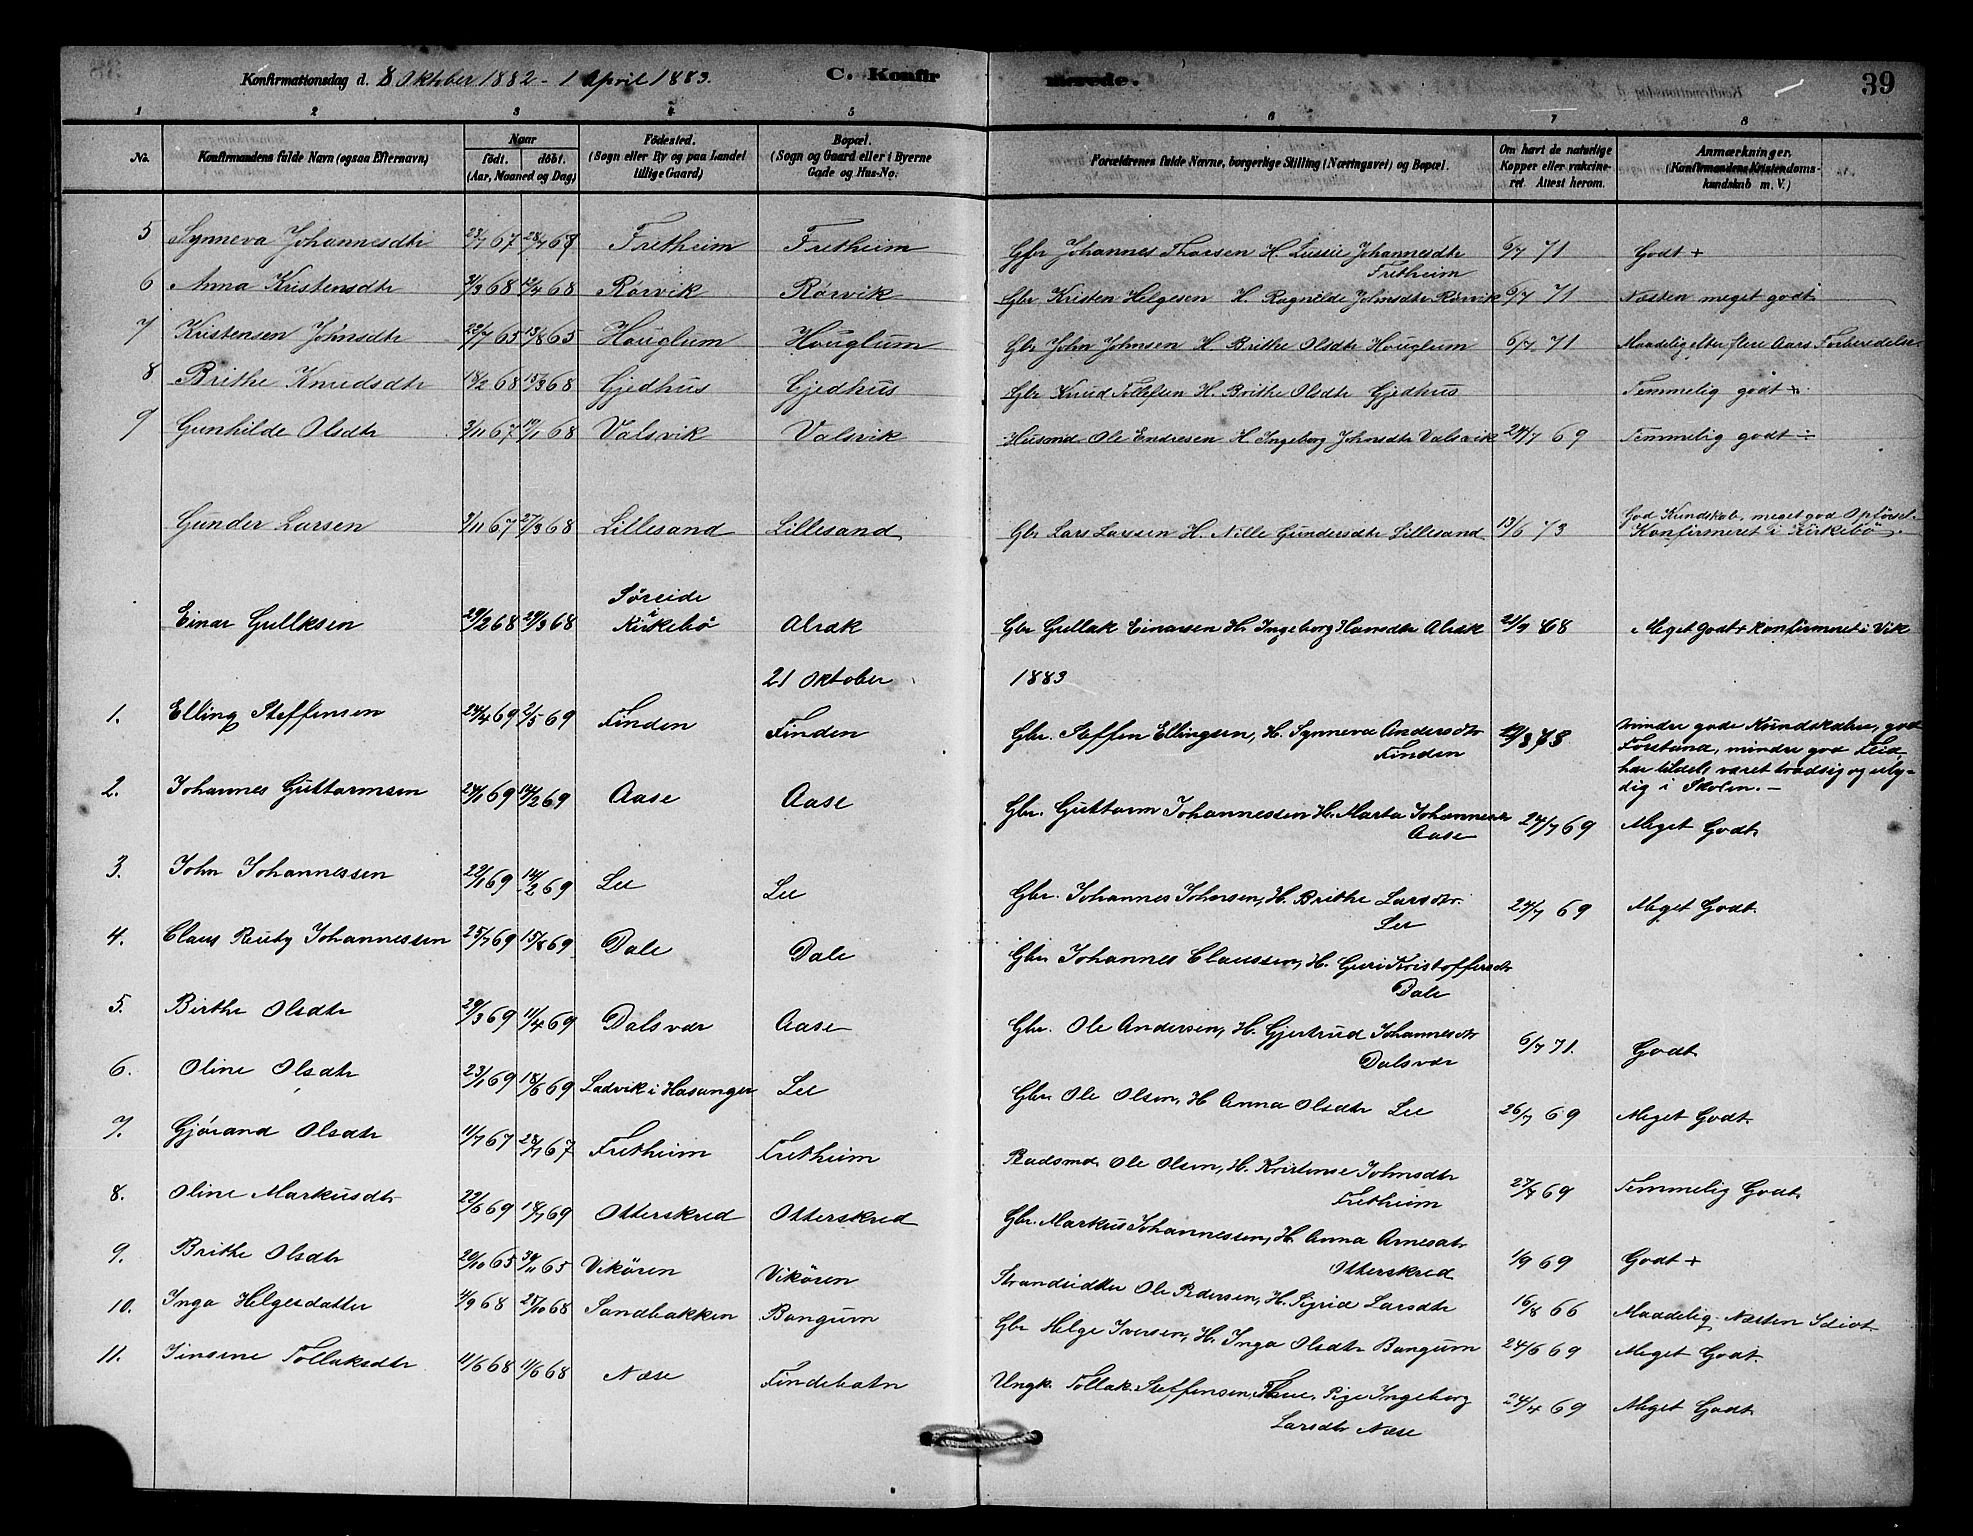 Konfirmationsdag d. 8 Oktober 1882 - 1 April 1883. C. Konfirmerede. 39
1 2 3 4 5 6 7 8
No. Konfirmandens fulde Navn (ogsaa Efternavn) Naar født. døbt. (Aar, Maaned og Dag) Fødested. (Sogn eller By og paa Landet tillige Gaard) Bopæl. (Sogn og Gaard eller i Byerne Gade og Hus-No. Forældrenes fulde Navne, borgerlige Stilling (Næringsvei) og Bopæl. Om havt de naturlige Kopper eller vakcineret. Attest herom. Anmærkninger. (Konfirmandens Kristendomskundskab m. V.)
5 Synneva Johannesdtr 23/7 67 28/7 67 Fretheim Fretheim Gbr Johannes Thorsen H. Lussie Johannesdtr Fretheim 6/7 71 Godt +
6 Anna Kristensdtr 3/3 68 12/4 68 Rørvik Rørvik Gbr Kristen Helgesen H. Ragnilde Johnsdtr Rørvik 6/7 71 Næsten meget godt
7 Kristensen Johnsdtr 22/7 65 13/8 65 Houglum Houglum Gbr John Johnsen H Brithe Olsdtr Houglum 6/7 71 Maadelig efter flere Aars Forberedelse
8 Brithe Knudsdtr 18/2 68 15/3 68 Gjedhus Gjedhus Gbr Knud Tollefsen H. Brithe Olsdtr Gjedhus Temmelig godt +
9 Gunhilde Olsdtr 3/11 67 19/1 68 Valsvik Valsvik Husmd Ole Endresen H Ingeborg Johnsdtr Valsvik 24/7 69 Temmelig godt ÷
Gunder Larsen 3/11 67 27/3 68 Lillesand Lillesand Gbr Lars Larsen H. Nille Gundersdtr Lillesand 13/6 73 God Kundskab, meget god Opførsel. Konfirmeret i Kirkebø.
Einar Gullksen 29/2 68 29/3 68 Søreide i Kirkebø Alrek Gbr Gullak Einarsen H. Ingeborg Hansdtr Alrek 21/9 68 Meget Godt + konfirmeret i Vik
21 Oktober 1883
1. Elling Steffensen 24/4 69 2/5 69 Finden Finden Gbr. Steffen Ellingsen, H. Synneva Andersdtr Finden mindre gode Kundskaber, god
Forstand, mindre god Flid
har tildels været tvadsig og uly-
dig i Skolen. —
2. Johannes Guttormsen 24/1 69 14/2 69 Aase Aase Gbr. Guttorm Johannessen H. Marta Johannesdr Aase 24/7 69 Meget Godt
3. John Johannessen 22/1 69 14/2 69 Lee Lee Gbr. Johannes Johnsen, H. Brithe Larsdtr. Lee 24/7 69 Meget Godt.
4. Claus Reuty Johannessen 25/7 69 15/8 69 Dale Dale Gbr Johannes Claussen, H. Guri Kristoffersdr Dale
5. Birthe Olsdtr 29/3 69 11/4 69 Dalsvær Aase Gbr. Ole Andersen, H. Gjertrud Johannesdtr Dalsvær 6/7 71. Godt
6. Oline Olsdtr 23/1 69 18/6 69 Ladvik i Hosanger Lee Gbr Ole Olsen, H Anna Olsdtr Lee 26/7 69 Meget Godt.
7. Gjørand Olsdtr 11/7 67 28/7 67 Fretheim Fretheim Baadsmd. Ole Olsen, H. Kristense Johnsdtr Fretheim 27/7 69 Temmelig Godt
8. Oline Markusdtr 22/6 69 18/7 69 Otterskred Otterskred Gbr. Markus Johannessen, H. Anna Arnesdtr Otterskred 1/9 69 Godt +
9. Brithe Olsdtr 20/10 65 30/11 65 Vikøren Vikøren Strandsidder Ole Pedersen, H. Sigrid Larsdtr 16/8 66 Maadelig. Næsten Idiot
10. Inga Helgesdatter 4/9 68 25/10 68 Sandbakken Bangum Gbr Helge Iversen, H. Inga Olsdtr Bangum 24/6 69 Meget Godt.
11. Jinsine Tollaksdtr 11/6 68 11/6 68 Næse Findebotn Ungk. Tollak Steffensen, Pige Ingeborg Larsdtr Næse 24/4 69 Meget Godt